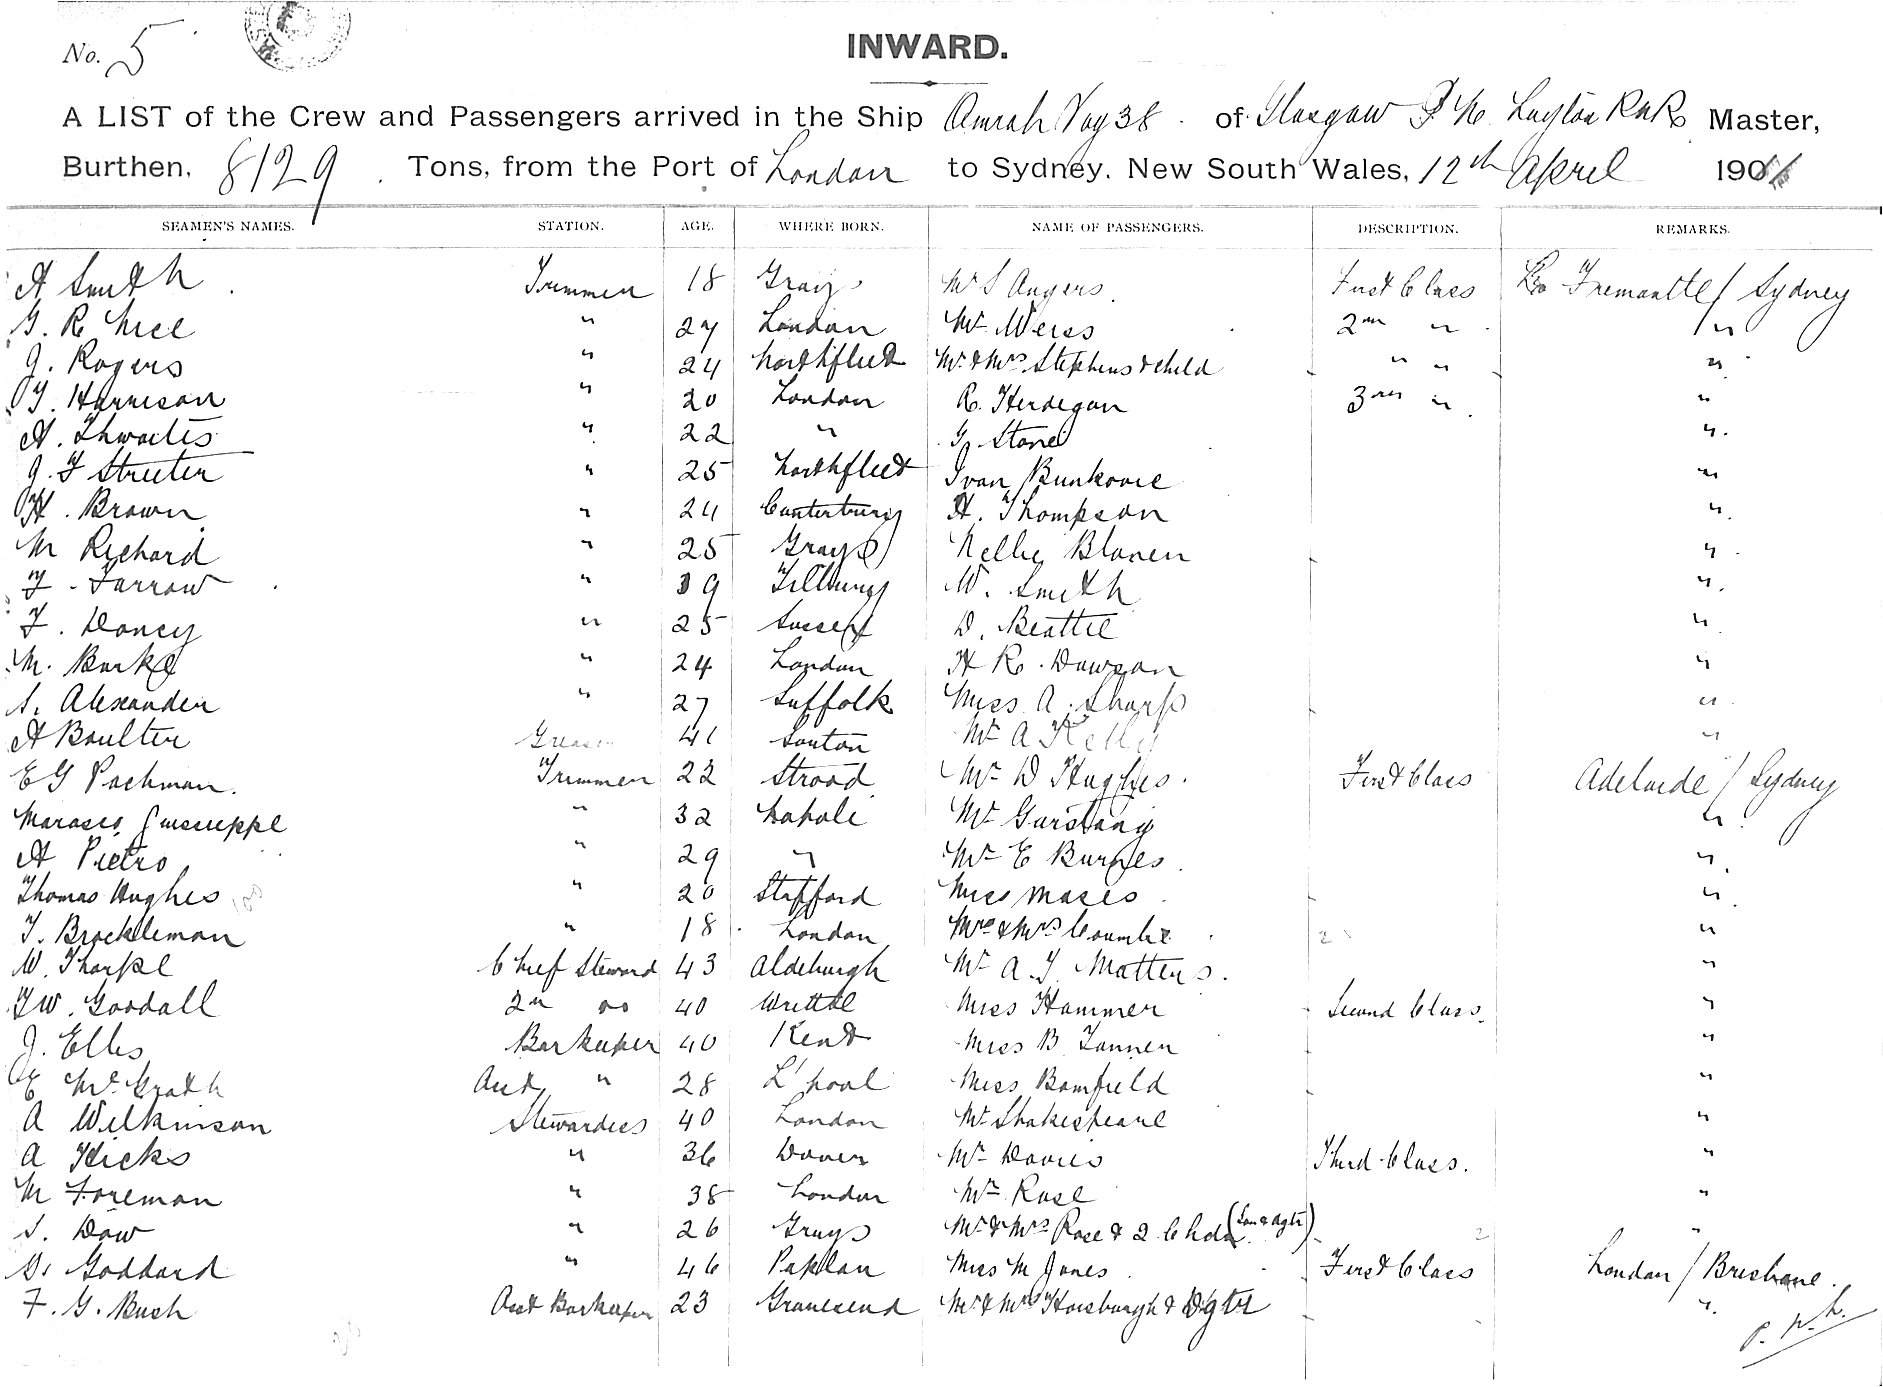 No. 5
INWARD.
A LIST of the Crew and Passengers arrived in the Ship Omrah Voy 38 of Glasgow Master,
Burthen, 8129 Tons, from the Port of London to Sydney, New South Wales, 12th April 190
SEAMEN'S NAMES. STATION. AGE. WHERE BORN. NAME OF PASSENGERS. DESCRIPTION. REMARKS.
A Smith Trimmer 18 Grays Mr S Angers First Class Fremantle / Sydney
G. R. Nice " 27 London Mr Weiss 2nd " "
J. Rogers " 24 Northfleet Mr & Mrs Stephens & child " " "
T. Harrison " 20 London R. Herdegan 3rd " "
A. Thwaites " 22 " G. Stone "
J. F Streeter " 25 Northfleet Ivan Bunkovic "
H. Brown " 24 Canterbury H. Thompson "
M Richard " 25 Grays Nellie Blanen "
F. Farrow " 39 Tilbury W. Smith "
F. Dancy " 25 Sussex D. Beattie "
M. Burke " 24 London H R. Dawson "
S. Alexander " 27 Suffolk Miss A. Sharp "
A Boulter Greaser 41 Mr A Kelly "
E G Pachman. Trimmer 22 Strood Mr D Hughes. First Class Adelaide / Sydney
Marasco Guiseuppe " 32 Napoli Mr Garstang "
A Pietro " 29 " Mr E Burnes "
Thomas Hughes " 20 Stafford Miss Moses "
T. Brockleman " 18 London Mr & Mrs Coumbe "
W. Tharpe Chief Steward 43 Aldeburgh Mr A. J. Matters. "
T W. Goodall 2nd do 40 Writtle Miss Hammer Second Class. "
J. Ellis Barkeeper 40 Kent Miss B Tanner "
E McGrath Asst " 28 L'pool Miss Bamfield "
A Wilkinson Stewardess 40 London Mr Shakespeare "
A Hicks " 36 Dover Mr Davies Third Class. "
M Foreman " 38 London Mr Rose "
S. Dow " 26 Grays Mr & Mrs Rose & 2 Chdn (Son & dgtr) "
G. Goddard " 46 Miss M Jones First Class London / Brisbane.
F. G. Bush Asst Barkeeper 23 Gravesend Mr & Mrs Horsburgh & Dgtr "